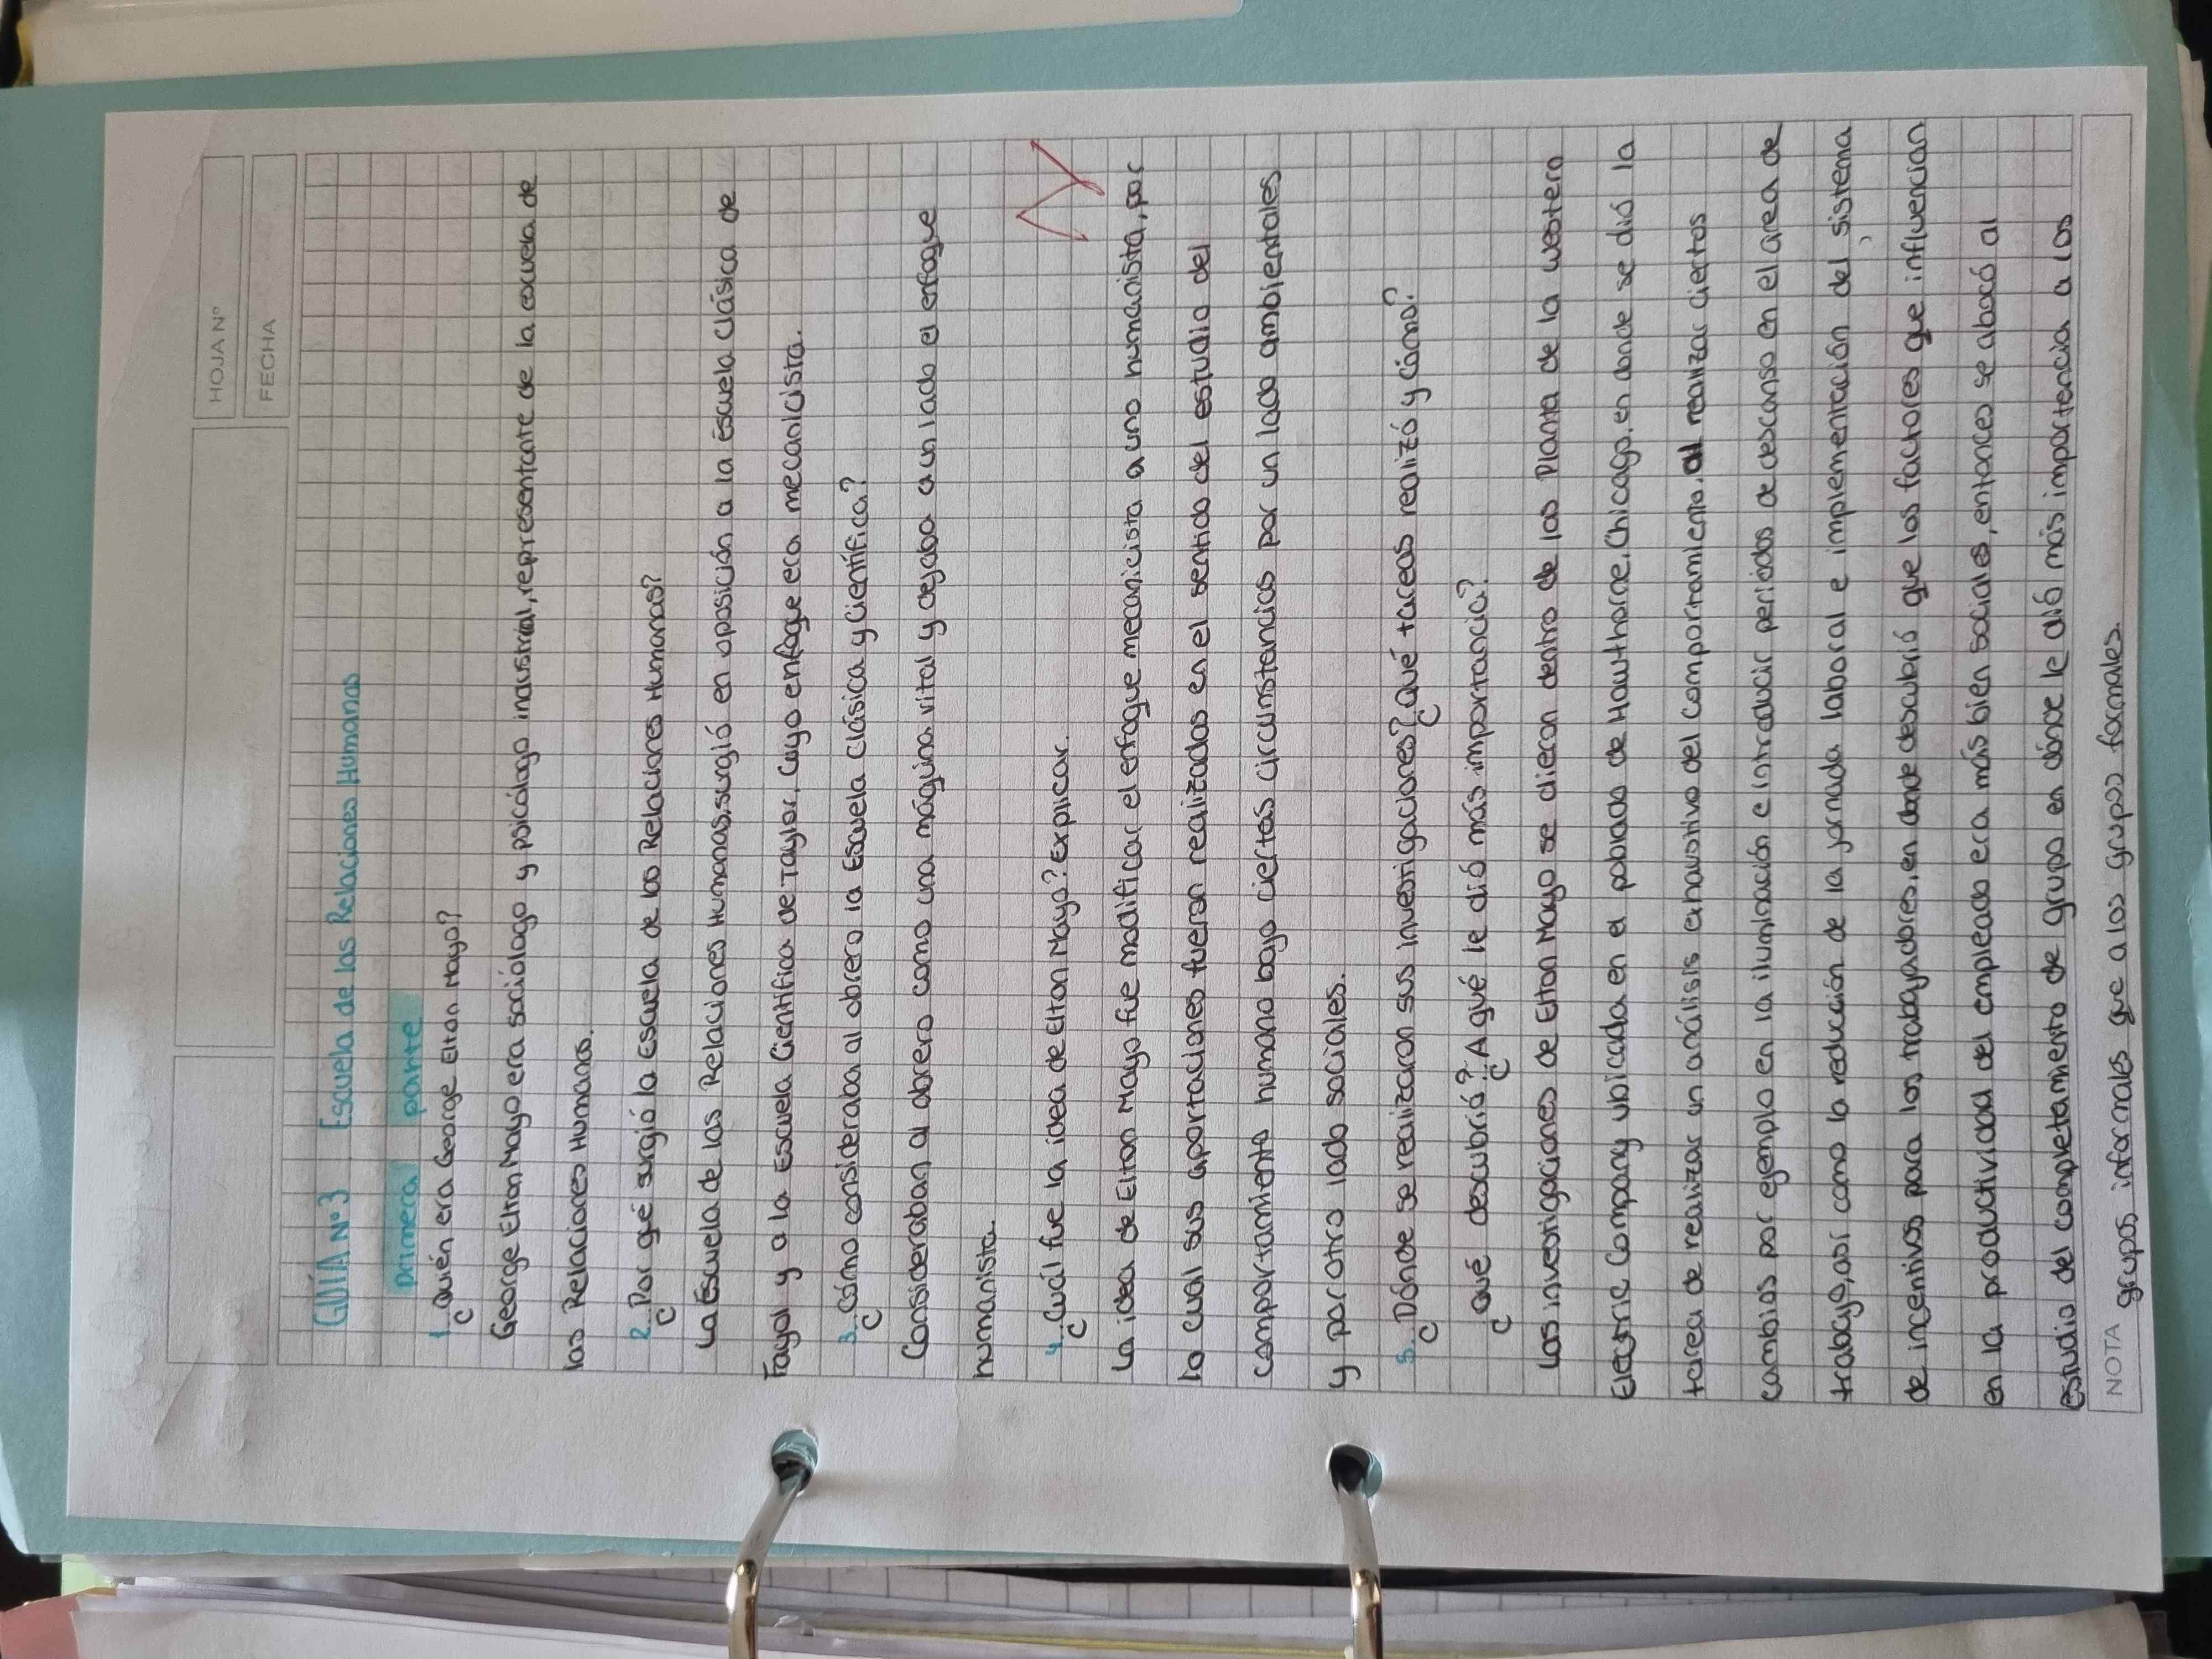 HOJA Nº
FECHA
GUÍA Nº3 Escuela de las Relaciones Humanas
primera parte
1. ¿Quién era George Elton Mayo?
George Elton Mayo era sociólogo y psicólogo industrial, representante de la escuela de
las Relaciones Humanas.
2. ¿Por qué surgió la Escuela de las Relaciones Humanas?
La Escuela de las Relaciones Humanas, surgió en oposición a la Escuela Clásica de
Fayol y a la Escuela Científica de Taylor, cuyo enfoque era mecanicista.
3. ¿Cómo consideraba al obrero la Escuela Clásica y Científica?
Consideraban al obrero como una máquina vital y dejaba a un lado el enfoque
humanista.
4. ¿Cuál fue la idea de Elton Mayo? Explicar.
La idea de Elton Mayo fue modificar el enfoque mecanicista a uno humanista, por
lo cual sus aportaciones fueron realizadas en el sentido del estudio del
comportamiento humano bajo ciertas circunstancias por un lado ambientales
y por otro lado sociales.
5. ¿Dónde se realizaron sus investigaciones? ¿Qué tareas realizó y cómo?
¿Qué descubrió? ¿A qué le dió más importancia?
Las investigaciones de Elton Mayo se dieron dentro de las Planta de la Western
Electric Company ubicada en el poblado de Hawthorne, Chicago, en donde se dió la
tarea de realizar un análisis exhaustivo del comportamiento, al realizar ciertos
cambios por ejemplo en la iluminación e introducir periodos de descanso en el área de
trabajo, así como la reducción de la jornada laboral e implementación del, sistema
de incentivos para los trabajadores, en donde descubrió que los factores que influencian
en la productividad del empleado era más bien sociales, entonces se abocó al
estudio del completamiento de grupo en dónde le dió más importancia a los
NOTA grupos informales que a los grupos formales.